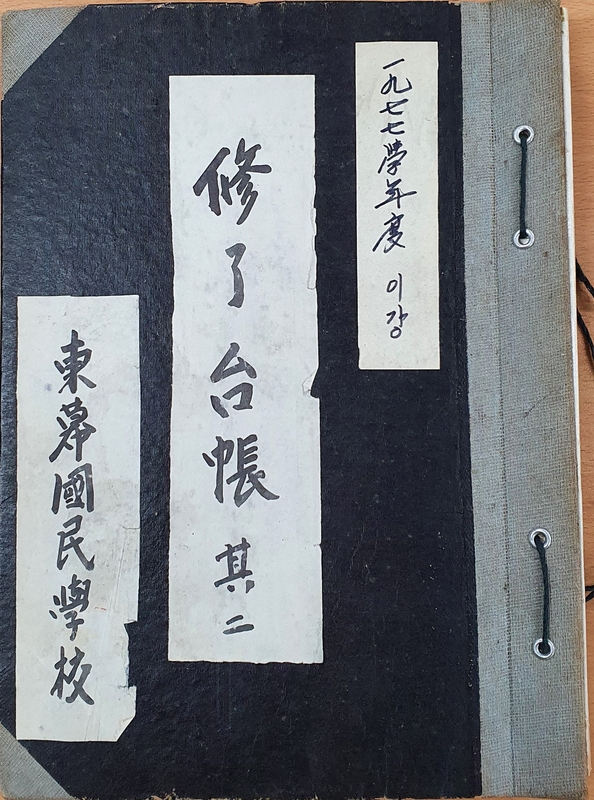 一九七七學年度 이강
修了台帳 其二
東幕國民學校